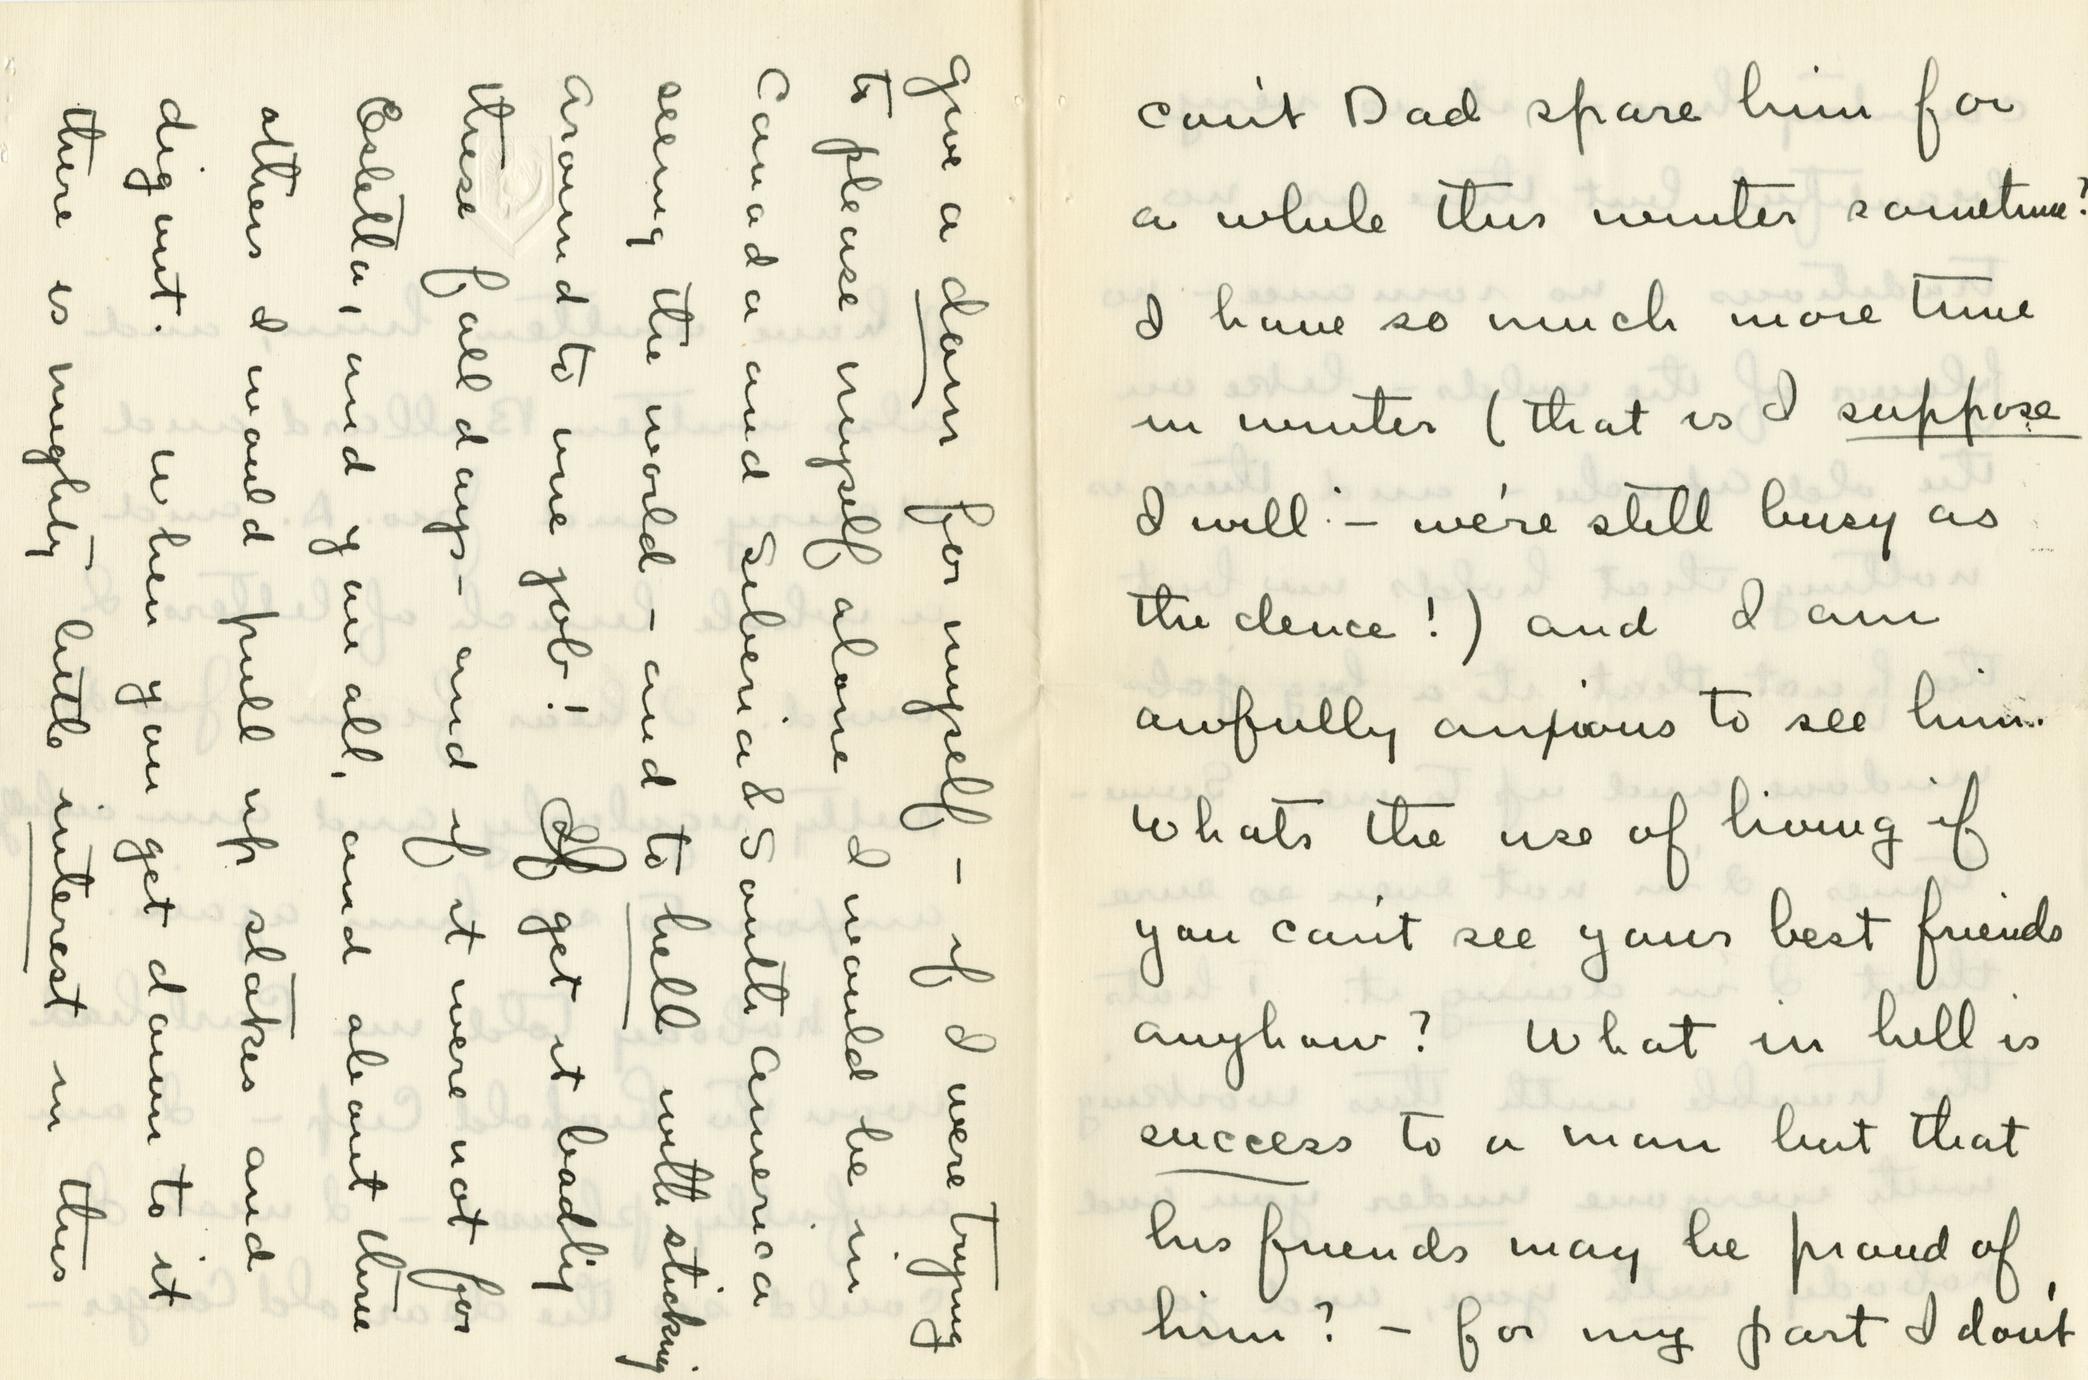 can't Dad spare him for
a while this winter sometime?
I have so much more time
in winter (that is I suppose
I will - we're still busy as
the deuce!) and I am
awfully anxious to see him.
Whats the use of living if
you can't see your best friends
anyhow? What in hell is
success to a man but that
his friends may be proud of
him? - for my part I don't
give a darn for myself - if I were trying
to please myself alone I would be in
Canada and Siberia & South America
seeing the world - and to hell with sticking
around to one job! I get it badly
these fall days - and if it were not for
Estella, and you all, and about three
others I would pull up stakes and
digout. When you get down to it
there is mighty little interest in this